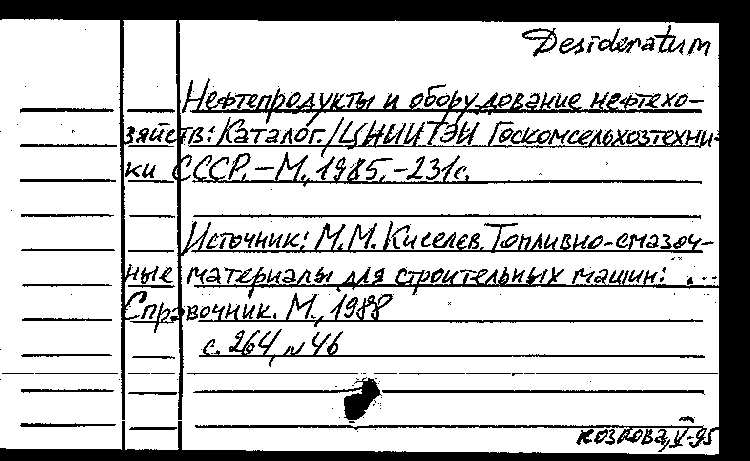 Desideratum
Нефтепродукты и оборудование нефтехо-
зяйств: Каталог./ЦНИИТЭИ Госкомсельхозтехни-
ки СССР. – М., 1985. – 231с.
Источник: М.М. Киселев. Топливно-смазоч-
ные материалы для строительных машин: ...
Справочник. М., 1988
с. 264, № 46
Козлова, V-95